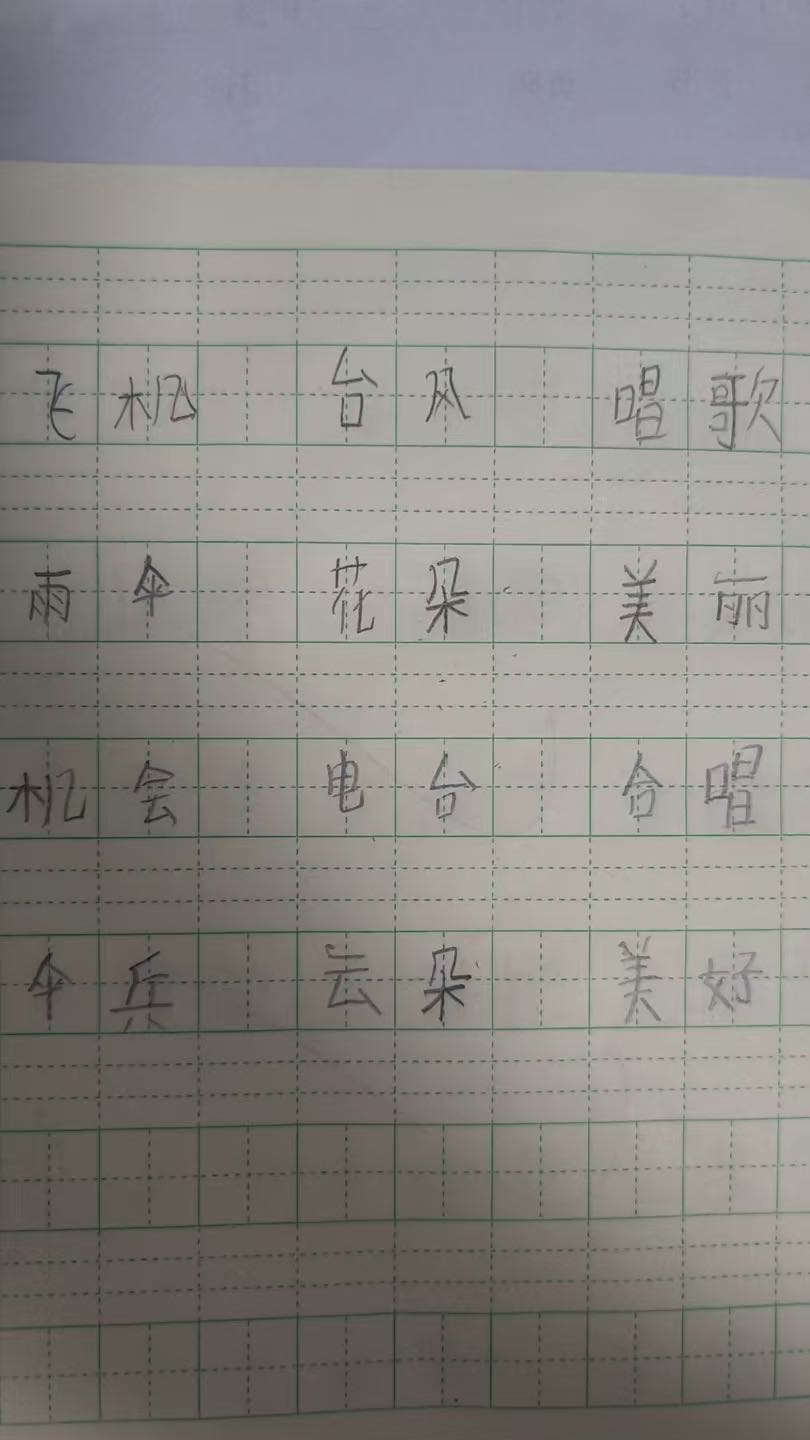 飞机 台风 唱歌
雨伞 花朵 美丽
机会 电台 合唱
伞兵 云朵 美好